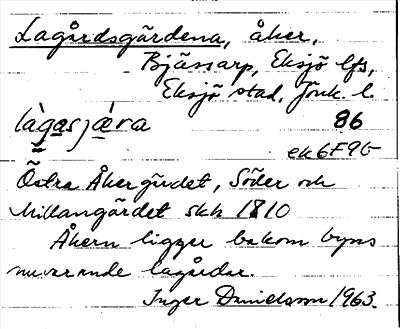 Lagårdsgärdena, åker,
Bjässarp, Eksjö lfs,
Eksjö stad, Jönk. l.
làgasjæ̀ra 86
ek 6F9b
Östra Åkergärdet, Söder och
Millangärdet skh 1810
Åkern ligger bakom byns
nuvarande lagårdar.
Inger Danielsson 1963.